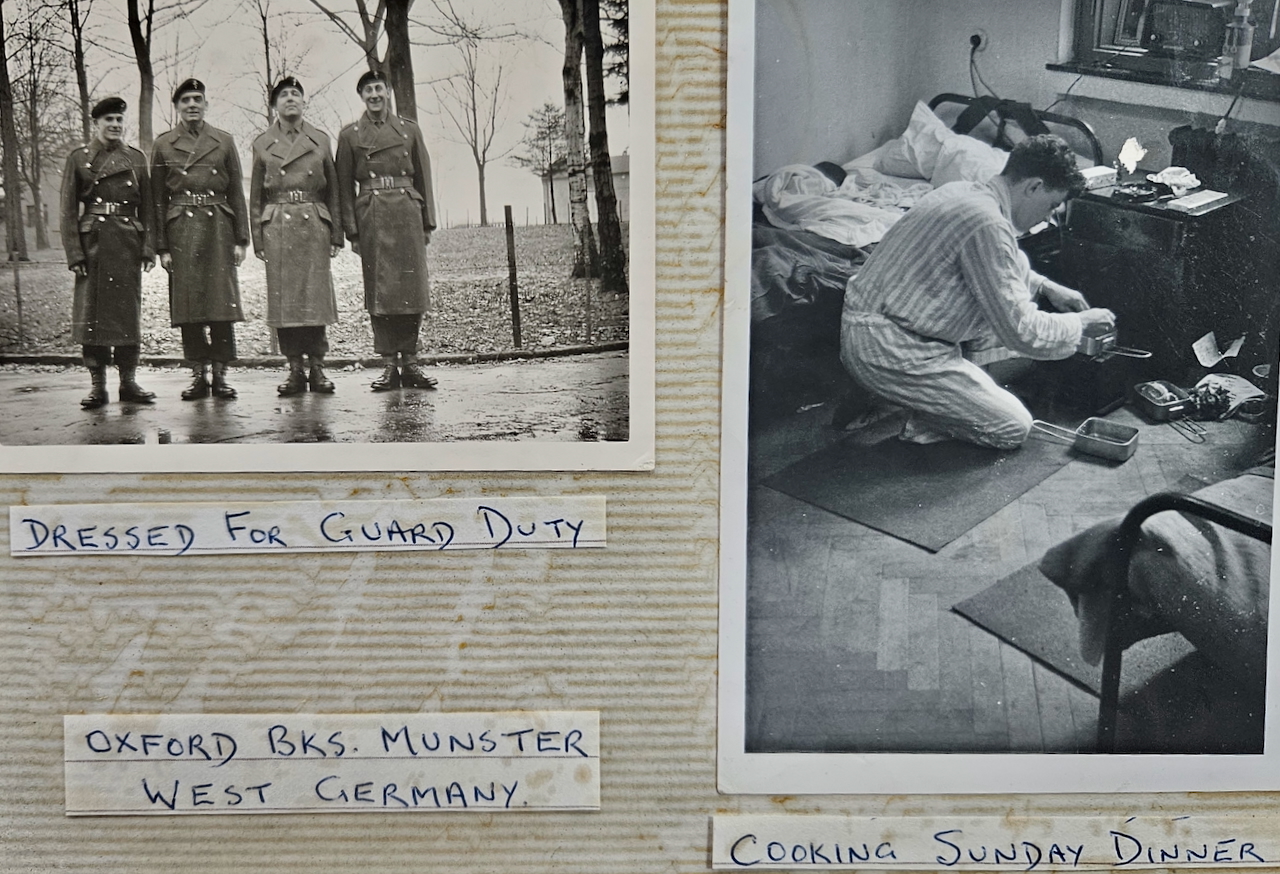 DRESSED FOR GUARD DUTY
OXFORD BKS. MUNSTER
WEST GERMANY.
COOKING SUNDAY DINNER